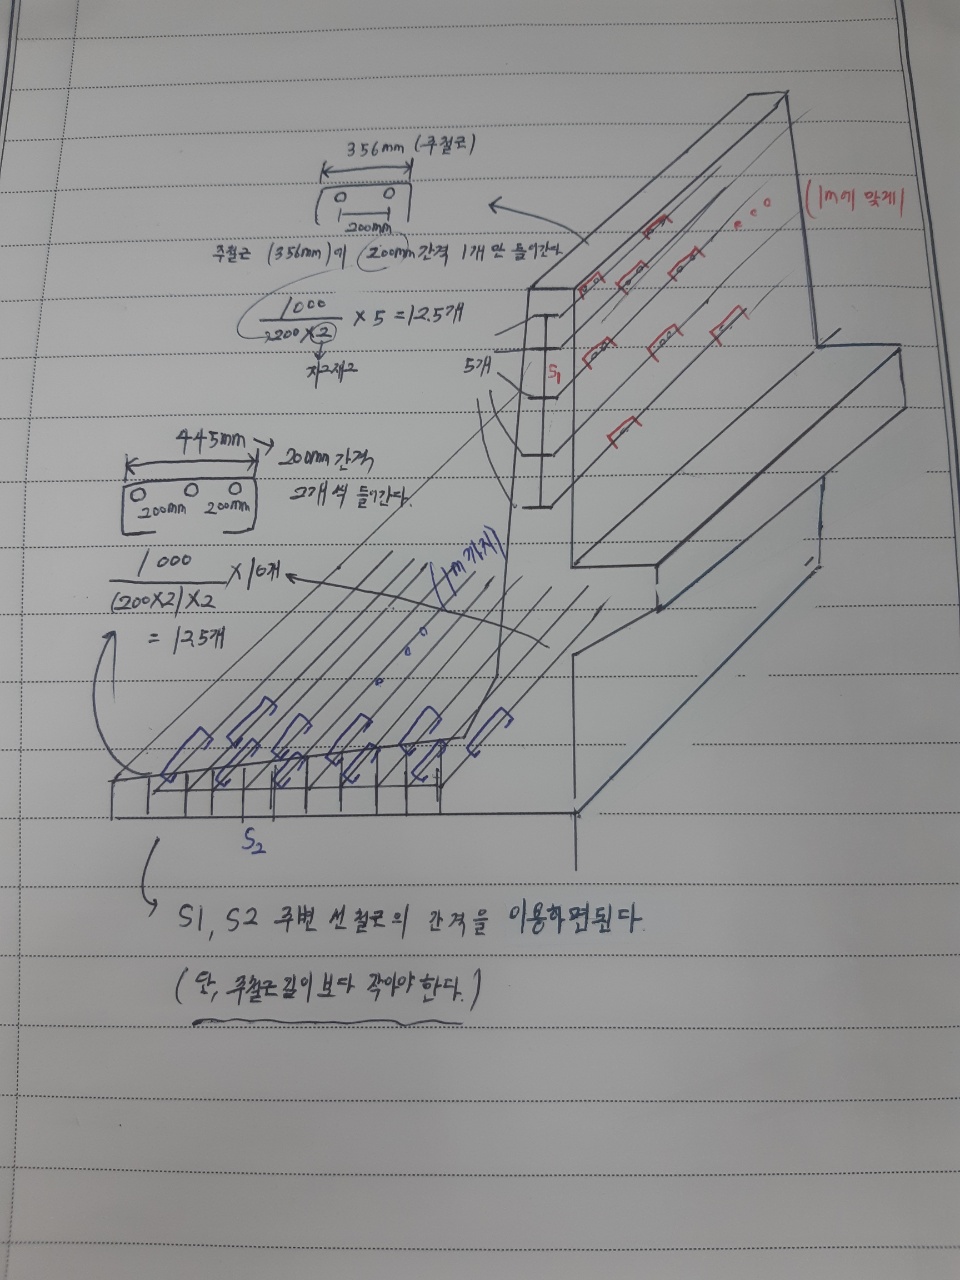 356mm (주철근)
200mm
주철근 (356mm)에 200mm 간격 1개 만 들어간다
1000
200×2 × 5 = 12.5개
지그재그
(1m에 맞게)
5개
S1
445mm → 200mm 간격
2개 씩 들어간다.
200mm 200mm
1000
(200×2)×2 × 10개
= 12.5개
(1m까지)
S2
S1, S2 주변 선 철근의 간격을 이용하면된다.
(단, 주철근길이 보다 작아야 한다.)